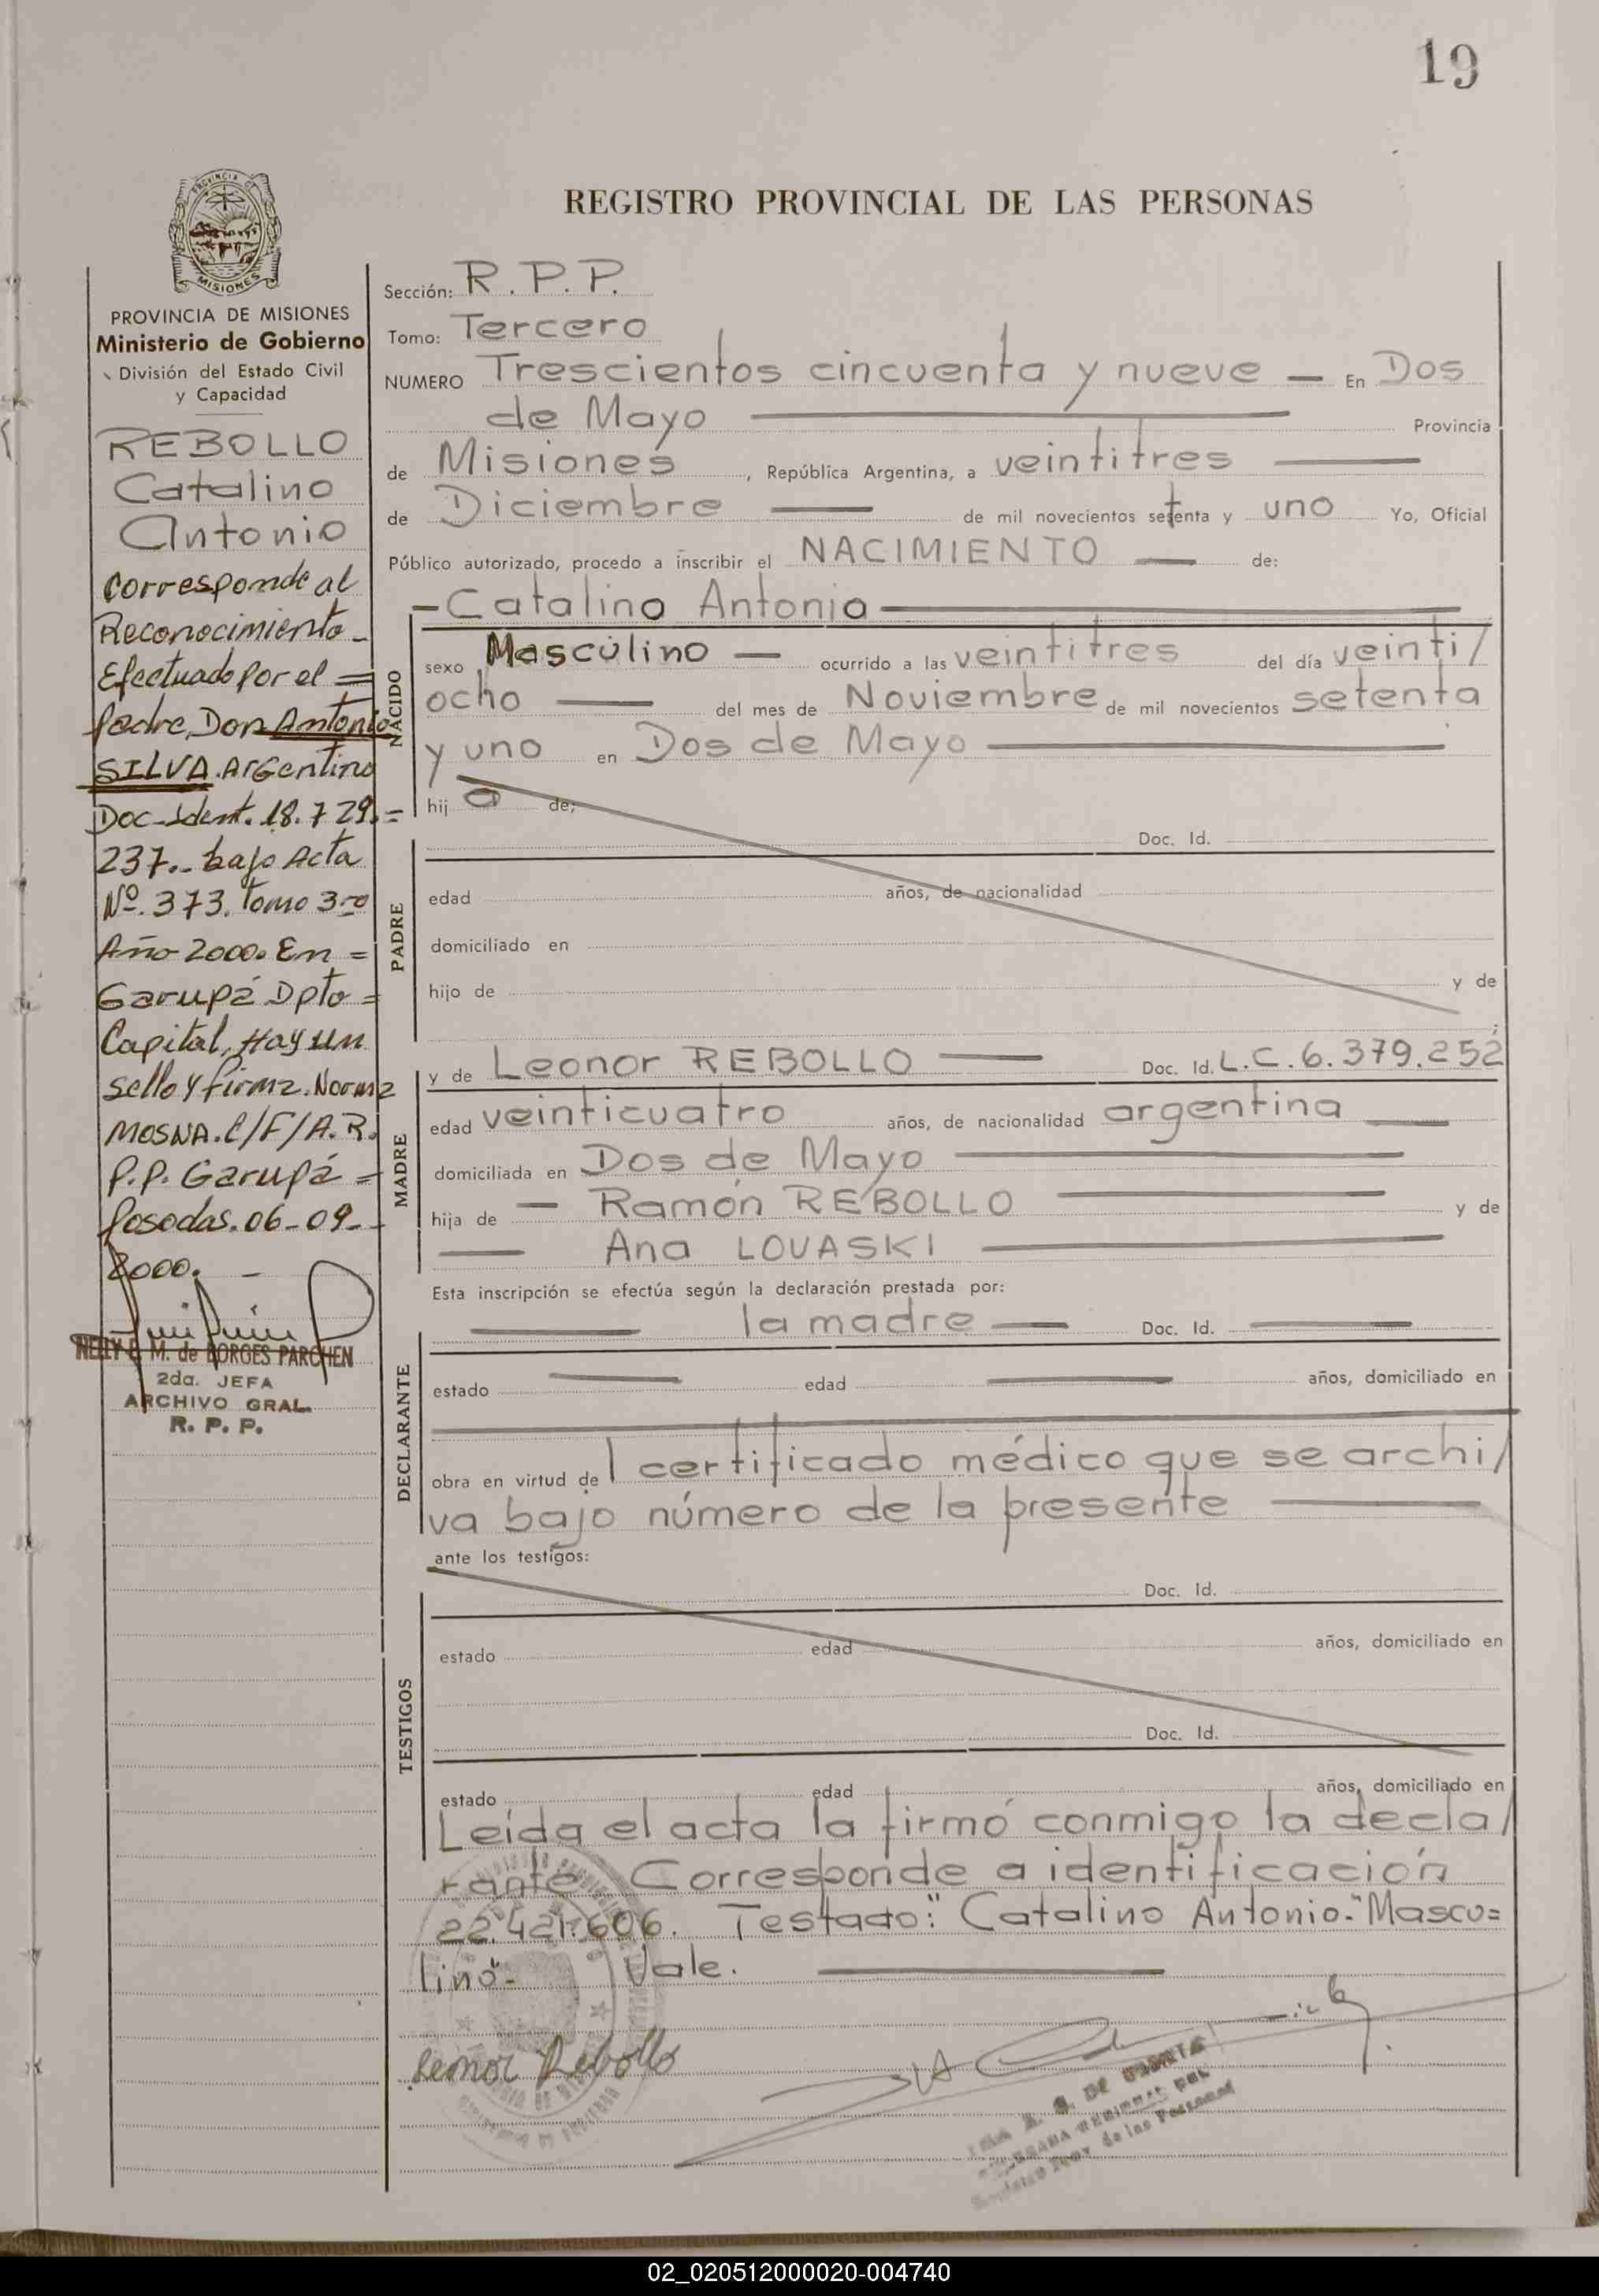 19
REGISTRO PROVINCIAL DE LAS PERSONAS
PROVINCIA DE
MISIONES
PROVINCIA DE MISIONES
Ministerio de Gobierno
División del Estado Civil
y Capacidad
REBOLLO
Catalino
Antonio
Corresponde al
Reconocimiento -
Efectuado por el =
Padre, Don Antonio
SILVA. Argentino
Doc-Ident. 18.729.=
237.- bajo Acta
Nº. 373. Tomo 3ro
Año 2000. En =
Garupá Dpto =
Capital, Hay un
sello y firma. Norma
MOSNA. C/F/A.R.
P.P. Garupá =
Posadas. 06-09-
2000. -
NELLY E. M. de BORGES PARCHEN
2da. JEFA
ARCHIVO GRAL.
R. P. P.
Sección: R.P.P.
Tomo: Tercero
NUMERO Trescientos cincuenta y nueve — En Dos
de Mayo — Provincia
de Misiones, República Argentina, a veintitres —
de Diciembre — de mil novecientos setenta y uno Yo, Oficial
Público autorizado, procedo a inscribir el NACIMIENTO — de:
— Catalino Antonio —
NACIDO
sexo Masculino — ocurrido a las veintitres del día veinti/
ocho — del mes de Noviembre de mil novecientos setenta
y uno en Dos de Mayo —
hij o de:
Doc. Id.
PADRE
edad años, de nacionalidad
domiciliado en
hijo de y de
;
MADRE
y de Leonor REBOLLO — Doc. Id. L.C. 6.379.252
edad veinticuatro años, de nacionalidad argentina —
domiciliada en Dos de Mayo —
hija de — Ramón REBOLLO — y de
— Ana LOVASKI —
Esta inscripción se efectúa según la declaración prestada por:
— la madre — Doc. Id. —
DECLARANTE
estado — edad — años, domiciliado en
obra en virtud del certificado médico que se archi/
va bajo número de la presente —
ante los testigos:
Doc. Id.
TESTIGOS
estado edad años, domiciliado en
Doc. Id.
estado edad años, domiciliado en
Leída el acta la firmó conmigo la decla/
rante Corresponde a identificación
22.421.606. Testado: "Catalino Antonio-"Mascu=
lino"- Vale. —
Leonor Rebollo
02_020512000020-004740